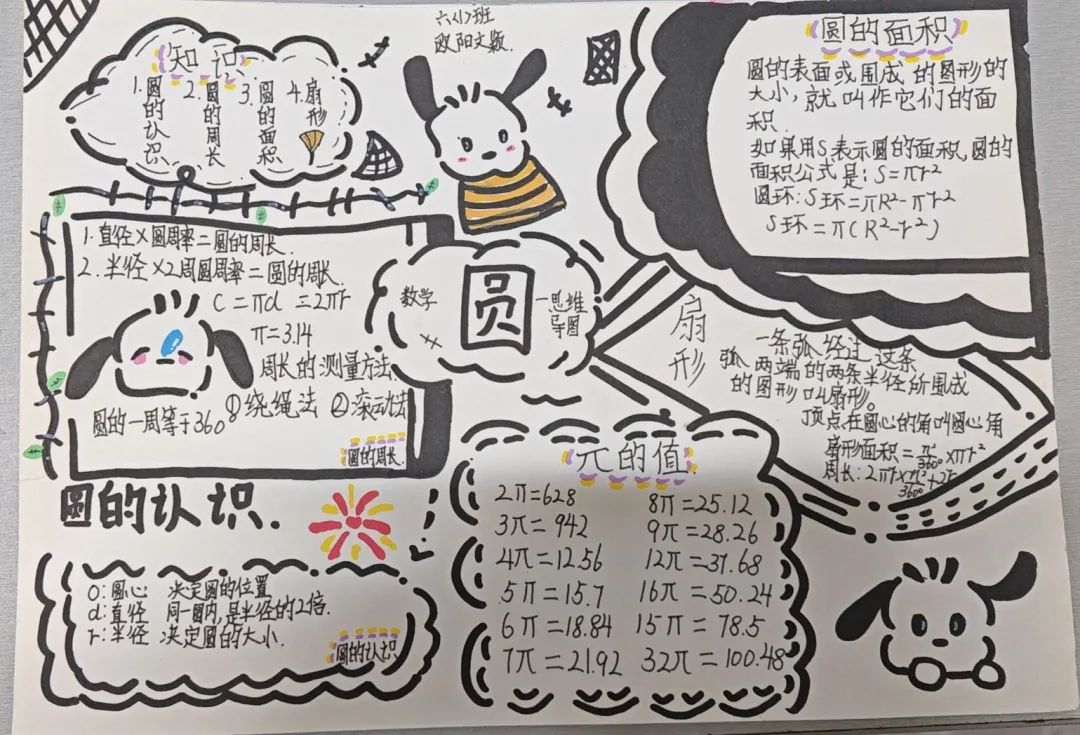 六(1)班
欧阳文颖.
知识
1.圆的认识
2.圆的周长
3.圆的面积
4.扇形
圆的面积
圆的表面或围成的图形的
大小,就叫作它们的面
积.
如果用S表示圆的面积,圆的
面积公式是:S=πr²
圆环:S环=πR²-πr²
S环=π(R²-r²)
1.直径×圆周率=圆的周长.
2.半径×2周圆周率=圆的周长.
C=πd=2πr
π=3.14
周长的测量方法.
①绕绳法 ②滚动法
圆的一周等于360°
圆的周长.
数学
圆
一思维
导图
扇形
一条弧经过这条
弧两端的两条半径所围成
的图形叫扇形。
顶点在圆心的角叫圆心角
扇形面积=n/360°×πr²
周长:2πr×n/360°+2r
圆的认识.
O:圆心 决定圆的位置
d:直径 同一圆内,是半径的2倍.
r:半径 决定圆的大小.
圆的认识
π的值
2π=628 8π=25.12
3π=942 9π=28.26
4π=12.56 12π=37.68
5π=15.7 16π=50.24
6π=18.84 15π=78.5
7π=21.92 32π=100.48